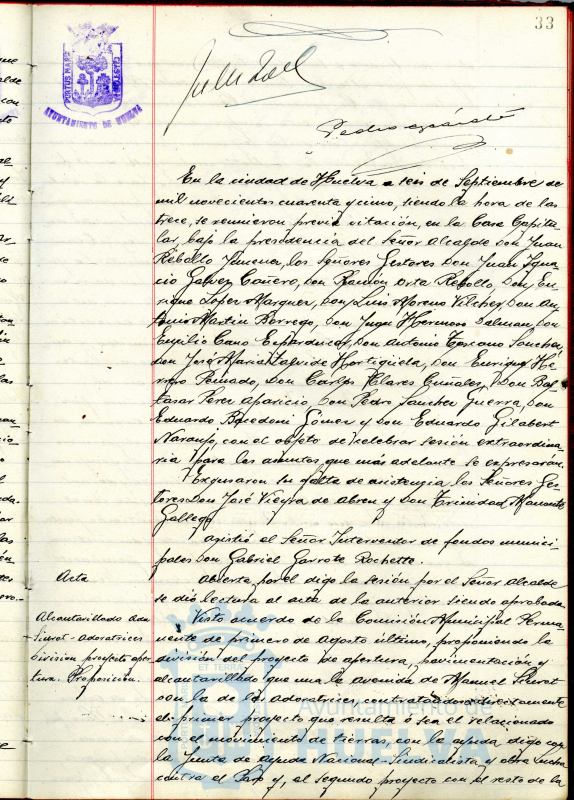 33
PORTUS MARIS ET TERRAE CUSTODIA
AYUNTAMIENTO DE HUELVA
Pedro
En la ciudad de Huelva a seis de Septiembre de
mil novecientos cuarenta y cinco, siendo la hora de las
trece, se reunieron previa citación, en la Casa Capitu
lar, bajo la presidencia del Señor Alcalde Don Juan
Rebollo Jimenez, los Señores Gestores Don Juan Igna
cio Galvez Cañero, Don Ramón Orta Rebollo, Don En
rique Lopez Marquez, Don Luis Moreno Vilchez, Don An
tonio Martin Borrego, Don Juan Hermoso Dalman, Don
Emilio Cano, Don Antonio Toscano Sanchez,
Don José Maria Zalvide Hortigüela, Don Enrique He
rrero Peinado, Don Carlos Clares, Don Bal
tasar Perez Aparicio, Don Pedro Sanchez Guerra, Don
Eduardo Gomez y Don Eduardo Gilabert
Naranjo, con el objeto de celebrar sesión extraordina
ria para los asuntos que más adelante se expresarán.
Excusaron su falta de asistencia los Señores Ges-
tores Don José Vieyra de Abreu y Don Trinidad
Gallego
Asistió el Señor Interventor de fondos munici-
pales Don Gabriel Garrote Rochette.
Acta
Abierta, por el digo la sesión por el Señor Alcalde
se dió lectura al acta de la anterior siendo aprobada.
Alcantarillado Ada
Siurot-Adoratrices
Division proyecto aper-
tura. Proposición.
Visto acuerdo de la Comisión Municipal Perma-
nente de primero de Agosto último, proponiendo la
división del proyecto de apertura, pavimentación y
alcantarillado que una la avenida de Manuel Siurot
con la de las Adoratrices, contratándose directamente
el primer proyecto que resulta ó sea el relacionado
con el movimiento de tierras, con la ayuda digo con
la Junta de ayuda Nacional-Sindicalista y obra lucha
contra el Paro y, el segundo proyecto con el resto de la
Ayuntamiento de
HUELVA